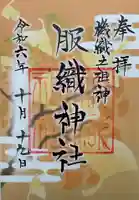 奉拝
機織之祖神
服織神社
令和六年 十月 十九日